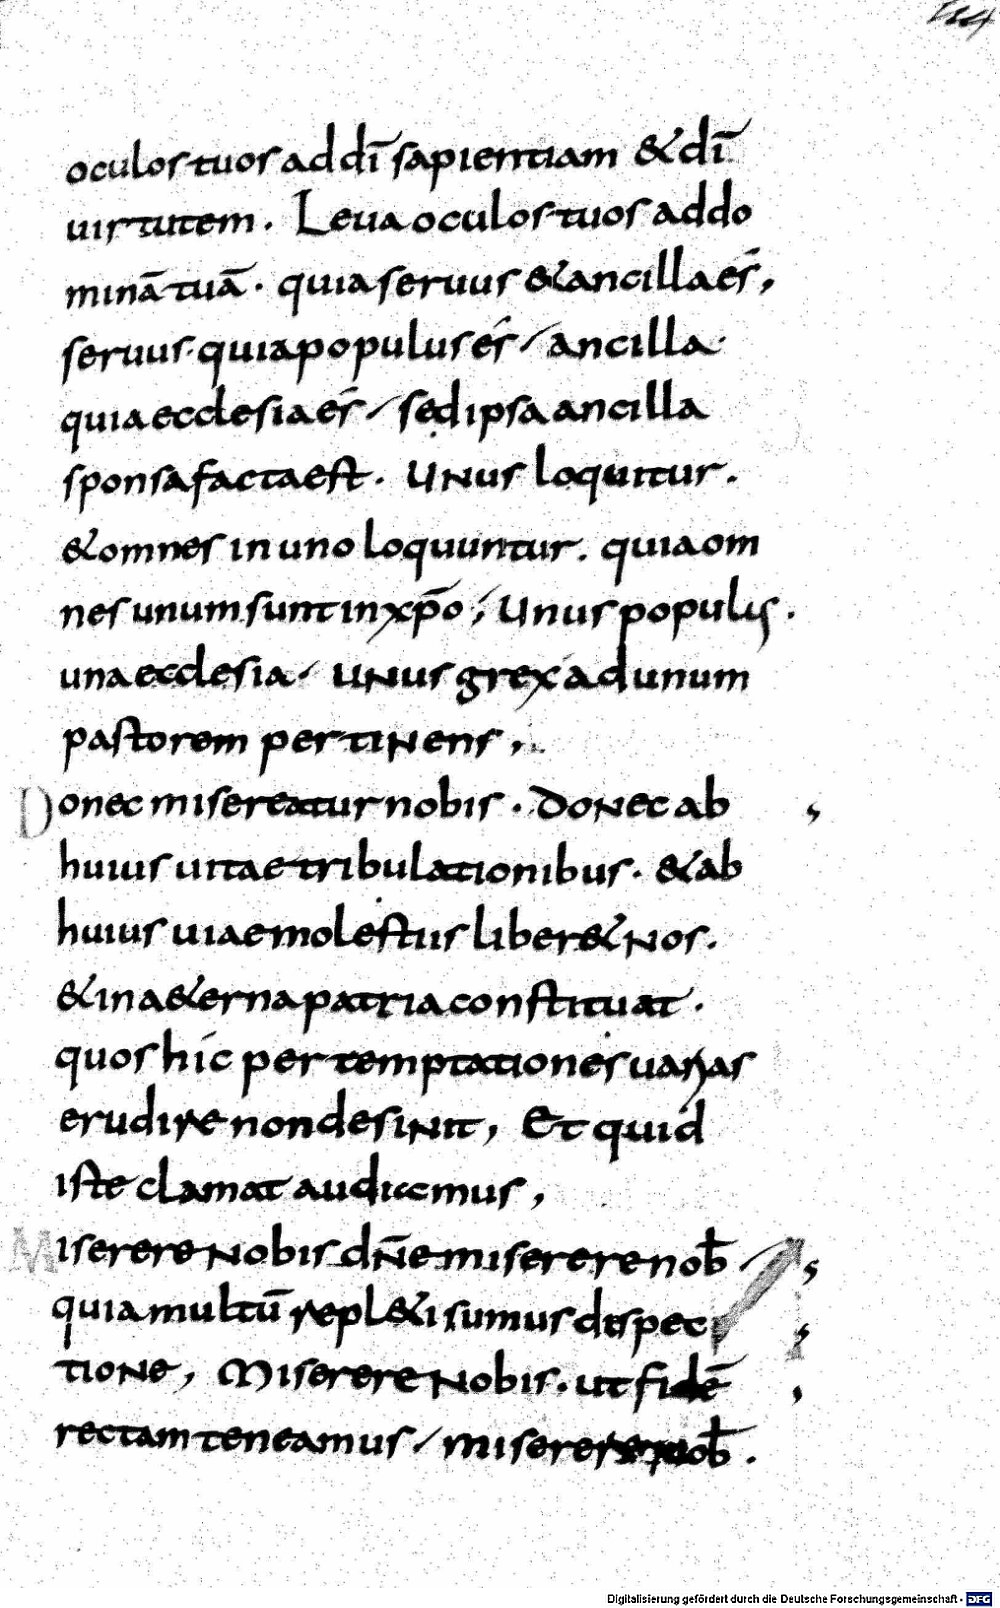 114
oculos tuos ad dī sapientiam & dī
uirtutem. Leua oculos tuos ad do
minā tuā. quia seruus & ancilla es,
seruus quia populus es / ancilla
quia ecclesia es / sed ipsa ancilla
sponsa facta est. Unus loquitur.
& omnes in uno loquuntur. quia om
nes unum sunt in xp̄o; Unus populus.
una ecclesia / unus grex ad unum
pastorem pertinens,
Donec misereatur nobis. Donec ab
huius uitae tribulationibus. & ab
huius uiae molestiis liber& nos.
& in a&erna patria constituat.
quos hic per temptationes uarias
erudire non desinit, Et quid
iste clamat audiemus,
Miserere nobis dn̄e miserere nob̄
quia multū repl&i sumus dispec
tione, Miserere nobis. ut fidē
rectam teneamus / miserere nob̄.
Digitalisierung gefördert durch die Deutsche Forschungsgemeinschaft - DFG